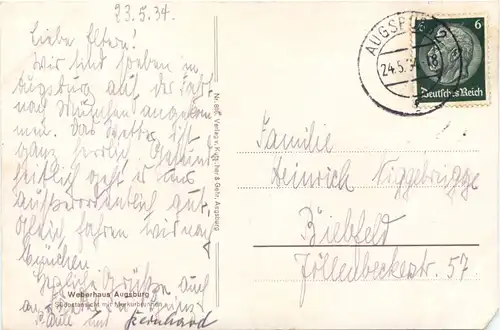 23.5.34.
Liebe Eltern!
Wir sind soeben in
Augsburg auf der Fahrt
nach München angekom
men. Das Wetter ist
ganz herrlich. Gesund-
heitlich geht es uns
außerordentlich gut.
fahren wir nach
München.
Herzliche Grüße auch
an
und Bernhard
Weberhaus Augsburg
Südostansicht mit Merkurbrunnen
Verlag v. Kutscher & Gehr, Augsburg
AUGSBURG 2
24.5.34
6
Deutsches Reich
Familie
Heinrich Niggebrügge
Bielefeld
Jöllenbeckerstr. 57